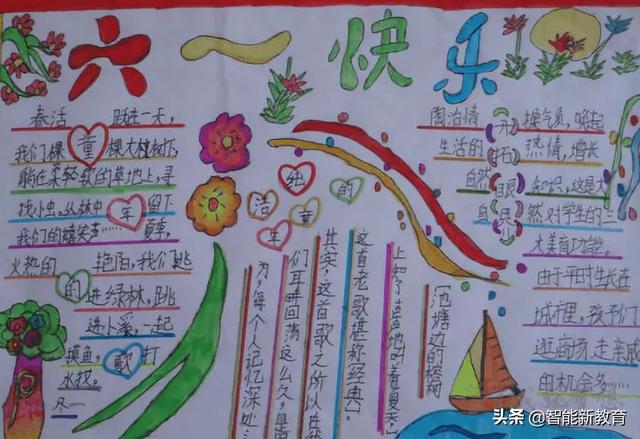 六一快乐
春活 跃在一天,
我们棵 童 棵大桂树下,
躺在柔轻软的草地上,寻
找小虫,丛林中 年 留下
我们的嬉笑声…… 夏季,
火热的 艳阳,我们跳
的 进绿林,跳
进小溪,一起
摸鱼, 歌 打
水汉。
洁 纯 的
年 童
《池塘边的榕树
上知了声声地叫着夏天》,
这首老歌堪称经典。
其实,这首歌之所以在
们耳畔回荡这么久,是
为了每个人记忆深处
开拓眼界
陶冶情 操气质,唤起
生活的 热情,增长
自然 知识,这是大
自 然对学生的
大美育功能。
由于平时生长在
城市里,孩子们
逛商场,走亲戚
的机会多……
头条 @智能新教育